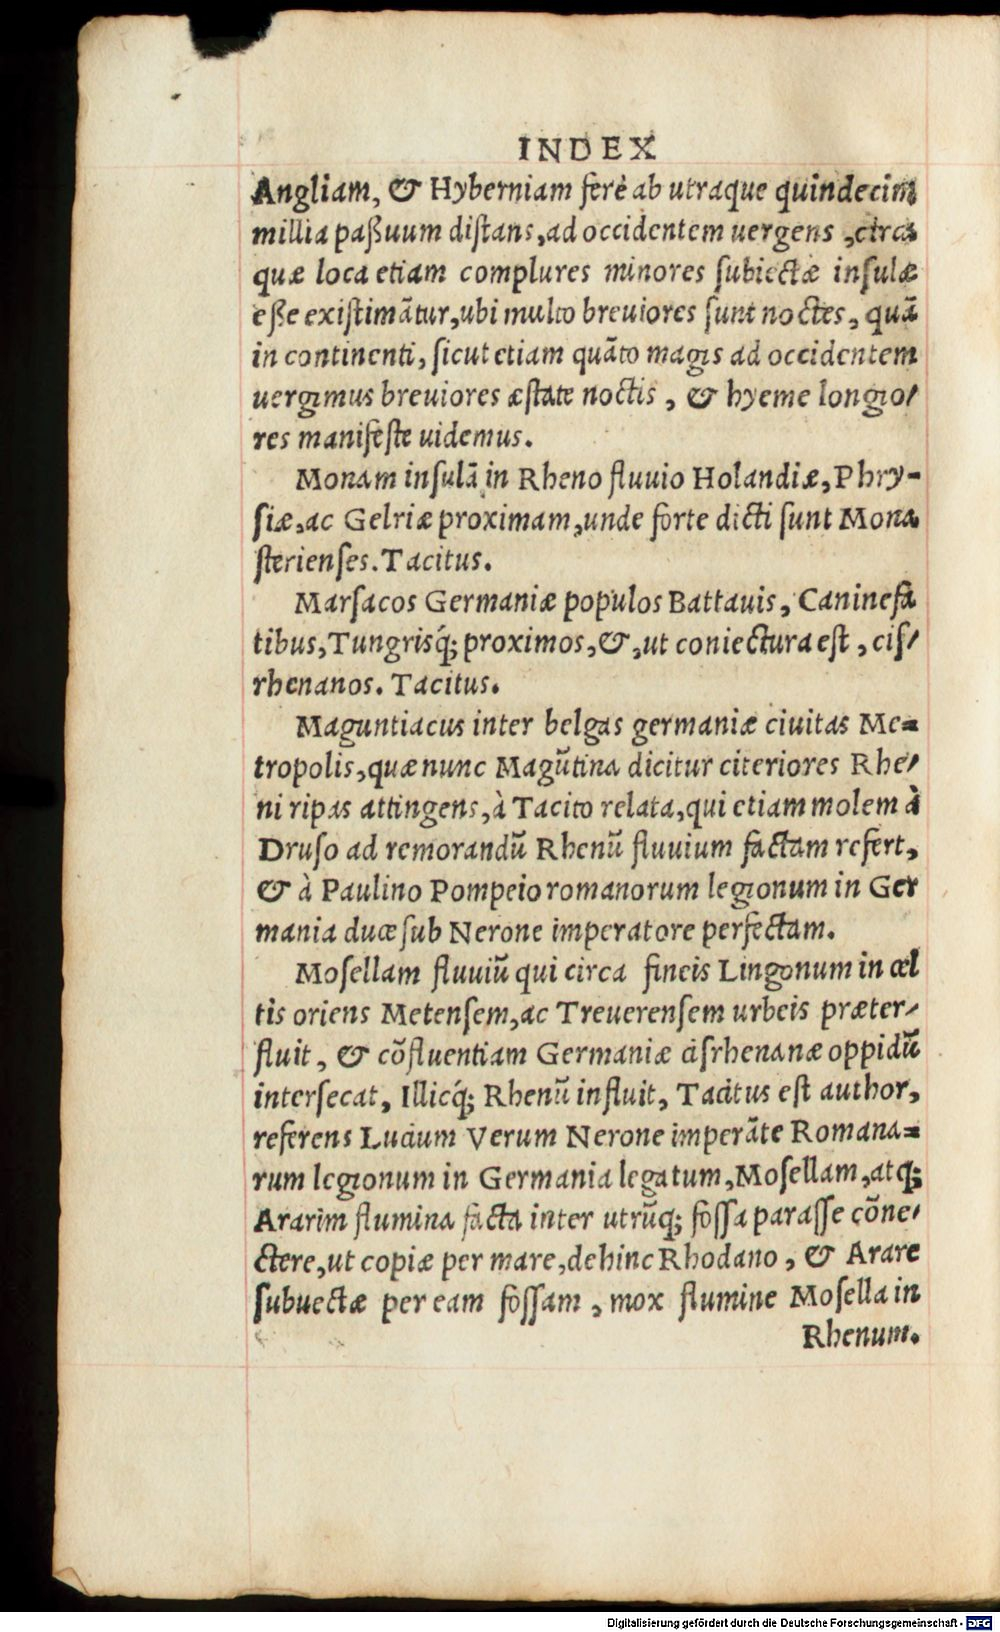 INDEX
Angliam, & Hyberniam ferè ab utraque quindecim
millia paßuum distans, ad occidentem uergens, circa
quæ loca etiam complures minores subiectæ insulæ
eße existimãtur, ubi multo breuiores sunt noctes, quã
in continenti, sicut etiam quãto magis ad occidentem
uergimus breuiores æstate noctis, & hyeme longio/
res manifeste uidemus.
Monam insulã in Rheno fluuio Holandiæ, Phry-
siæ, ac Gelriæ proximam, unde forte dicti sunt Mona
sterienses. Tacitus.
Marsacos Germaniæ populos Battauis, Caninefa
tibus, Tungrisq́; proximos, &, ut coniectura est, cis/
rhenanos. Tacitus.
Maguntiacus inter belgas germaniæ ciuitas Me=
tropolis, quæ nunc Magũtina dicitur citeriores Rhe/
ni ripas attingens, à Tacito relata, qui etiam molem à
Druso ad remorandũ Rhenũ fluuium factam refert,
& à Paulino Pompeio romanorum legionum in Ger
mania duce sub Nerone imperatore perfectam.
Mosellam fluuiũ qui circa fineis Lingonum in cel
tis oriens Metensem, ac Treuerensem urbeis præter/
fluit, & cõfluentiam Germaniæ cisrhenanæ oppidũ
intersecat, Illicq́; Rhenũ influit, Tacitus est author,
referens Lucium Verum Nerone imperãte Romana=
rum legionum in Germania legatum, Mosellam, atq;
Ararim flumina facta inter utrũq; fossa parasse cõne/
ctere, ut copiæ per mare, dehinc Rhodano, & Arare
subuectæ per eam fossam, mox flumine Mosella in
Rhenum.
Digitalisierung gefördert durch die Deutsche Forschungsgemeinschaft - DFG